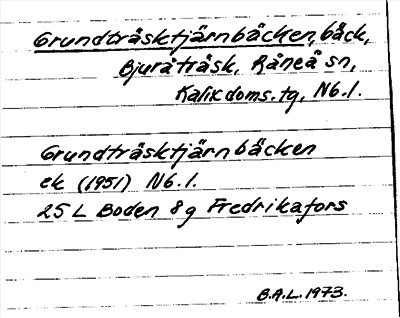 Grundträsktjärnbäcken, bäck,
Bjuråträsk, Råneå sn,
Kalix doms. tg, Nb. l.
Grundträsktjärnbäcken
ek (1951) Nb. l.
25 L Boden 8g Fredrikafors
B.A.L. 1973.